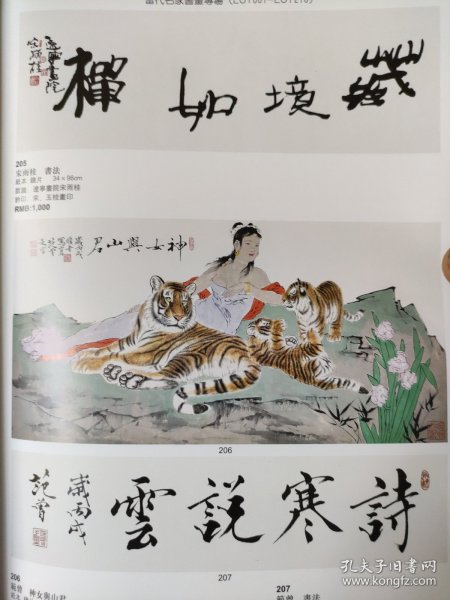 當代名家書畫專場（LOT001-LOT210）
境如禪
205
宋雨桂 書法
紙本 鏡片 34×96cm
款識：遼寧畫院宋雨桂
鈐印：宋、玉桂畫印
RMB:1,000
神女與山君
206
詩寒說雲
歲丙戌
范曾
207
206
範曾 神女與山君
207
範曾 書法
孔夫子旧书网